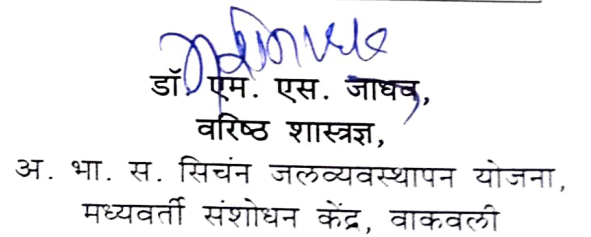 डॉ. एम. एस. जाधव,
वरिष्ठ शास्त्रज्ञ,
अ. भा. स. सिचंन जलव्यवस्थापन योजना,
मध्यवर्ती संशोधन केंद्र, वाकवली